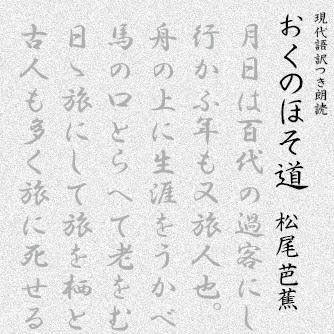 現代語訳つき朗読
おくのほそ道
松尾芭蕉
月日は百代の過客にし
行かふ年も又旅人也。
舟の上に生涯をうかべ
馬の口とらへて老をむ
日ゝ旅にして旅を栖と
古人も多く旅に死せる